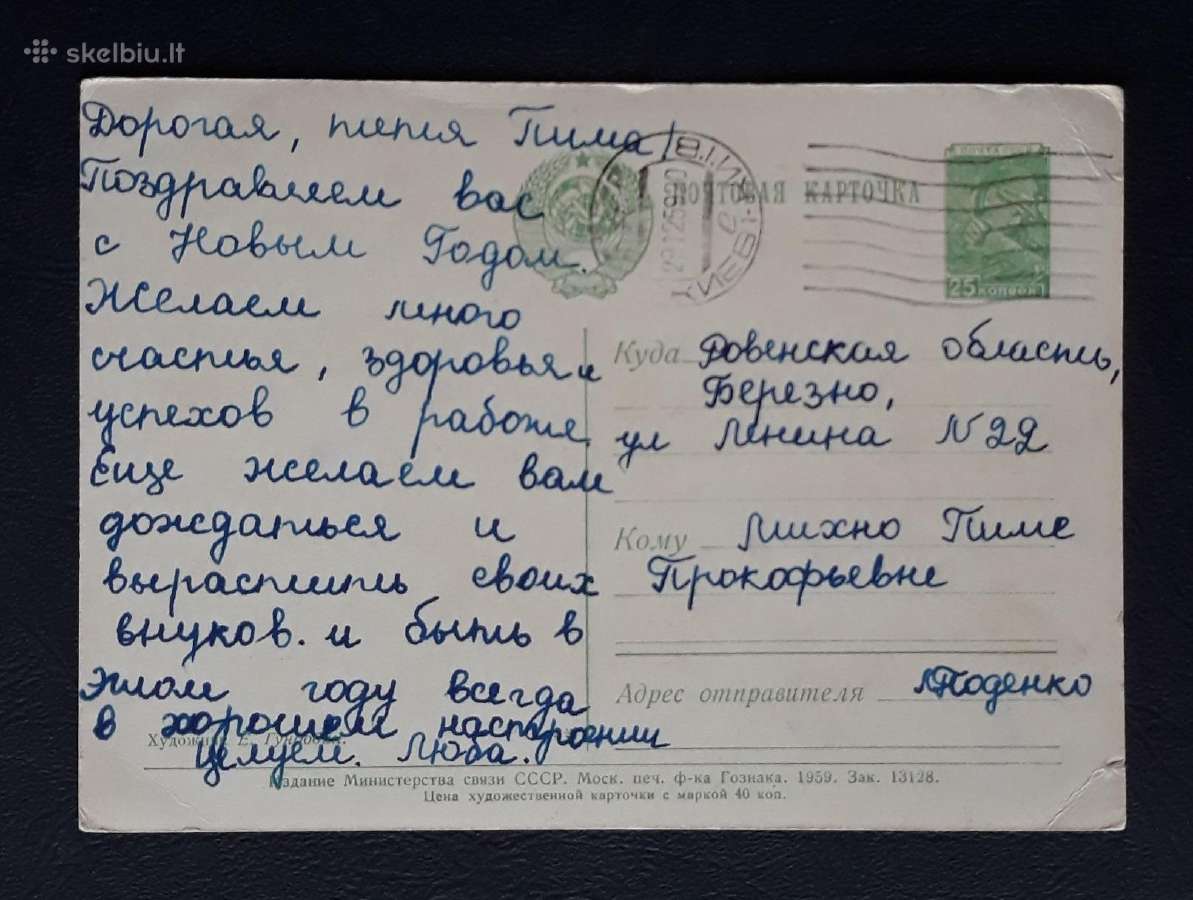 skelbiu.lt
Дорогая, тетя Пима!
Поздравляем вас
с Новым Годом.
Желаем много
счастья, здоровья и
успехов в работе.
Еще желаем вам
дождаться и
вырастить своих
внуков. и быть в
этом году всегда
в хорошем настроении
Целуем. Люба.
ПОЧТОВАЯ КАРТОЧКА
КИЕВ
25 КОПЕЕК
Куда Ровенская область,
Березно,
ул Ленина N 22
Кому Михно Пиме
Прокофьевне
Адрес отправителя Л Тоденко
Художник Е.
Издание Министерства связи СССР. Моск. печ. ф-ка Гознака. 1959. Зак. 13128.
Цена художественной карточки с маркой 40 коп.